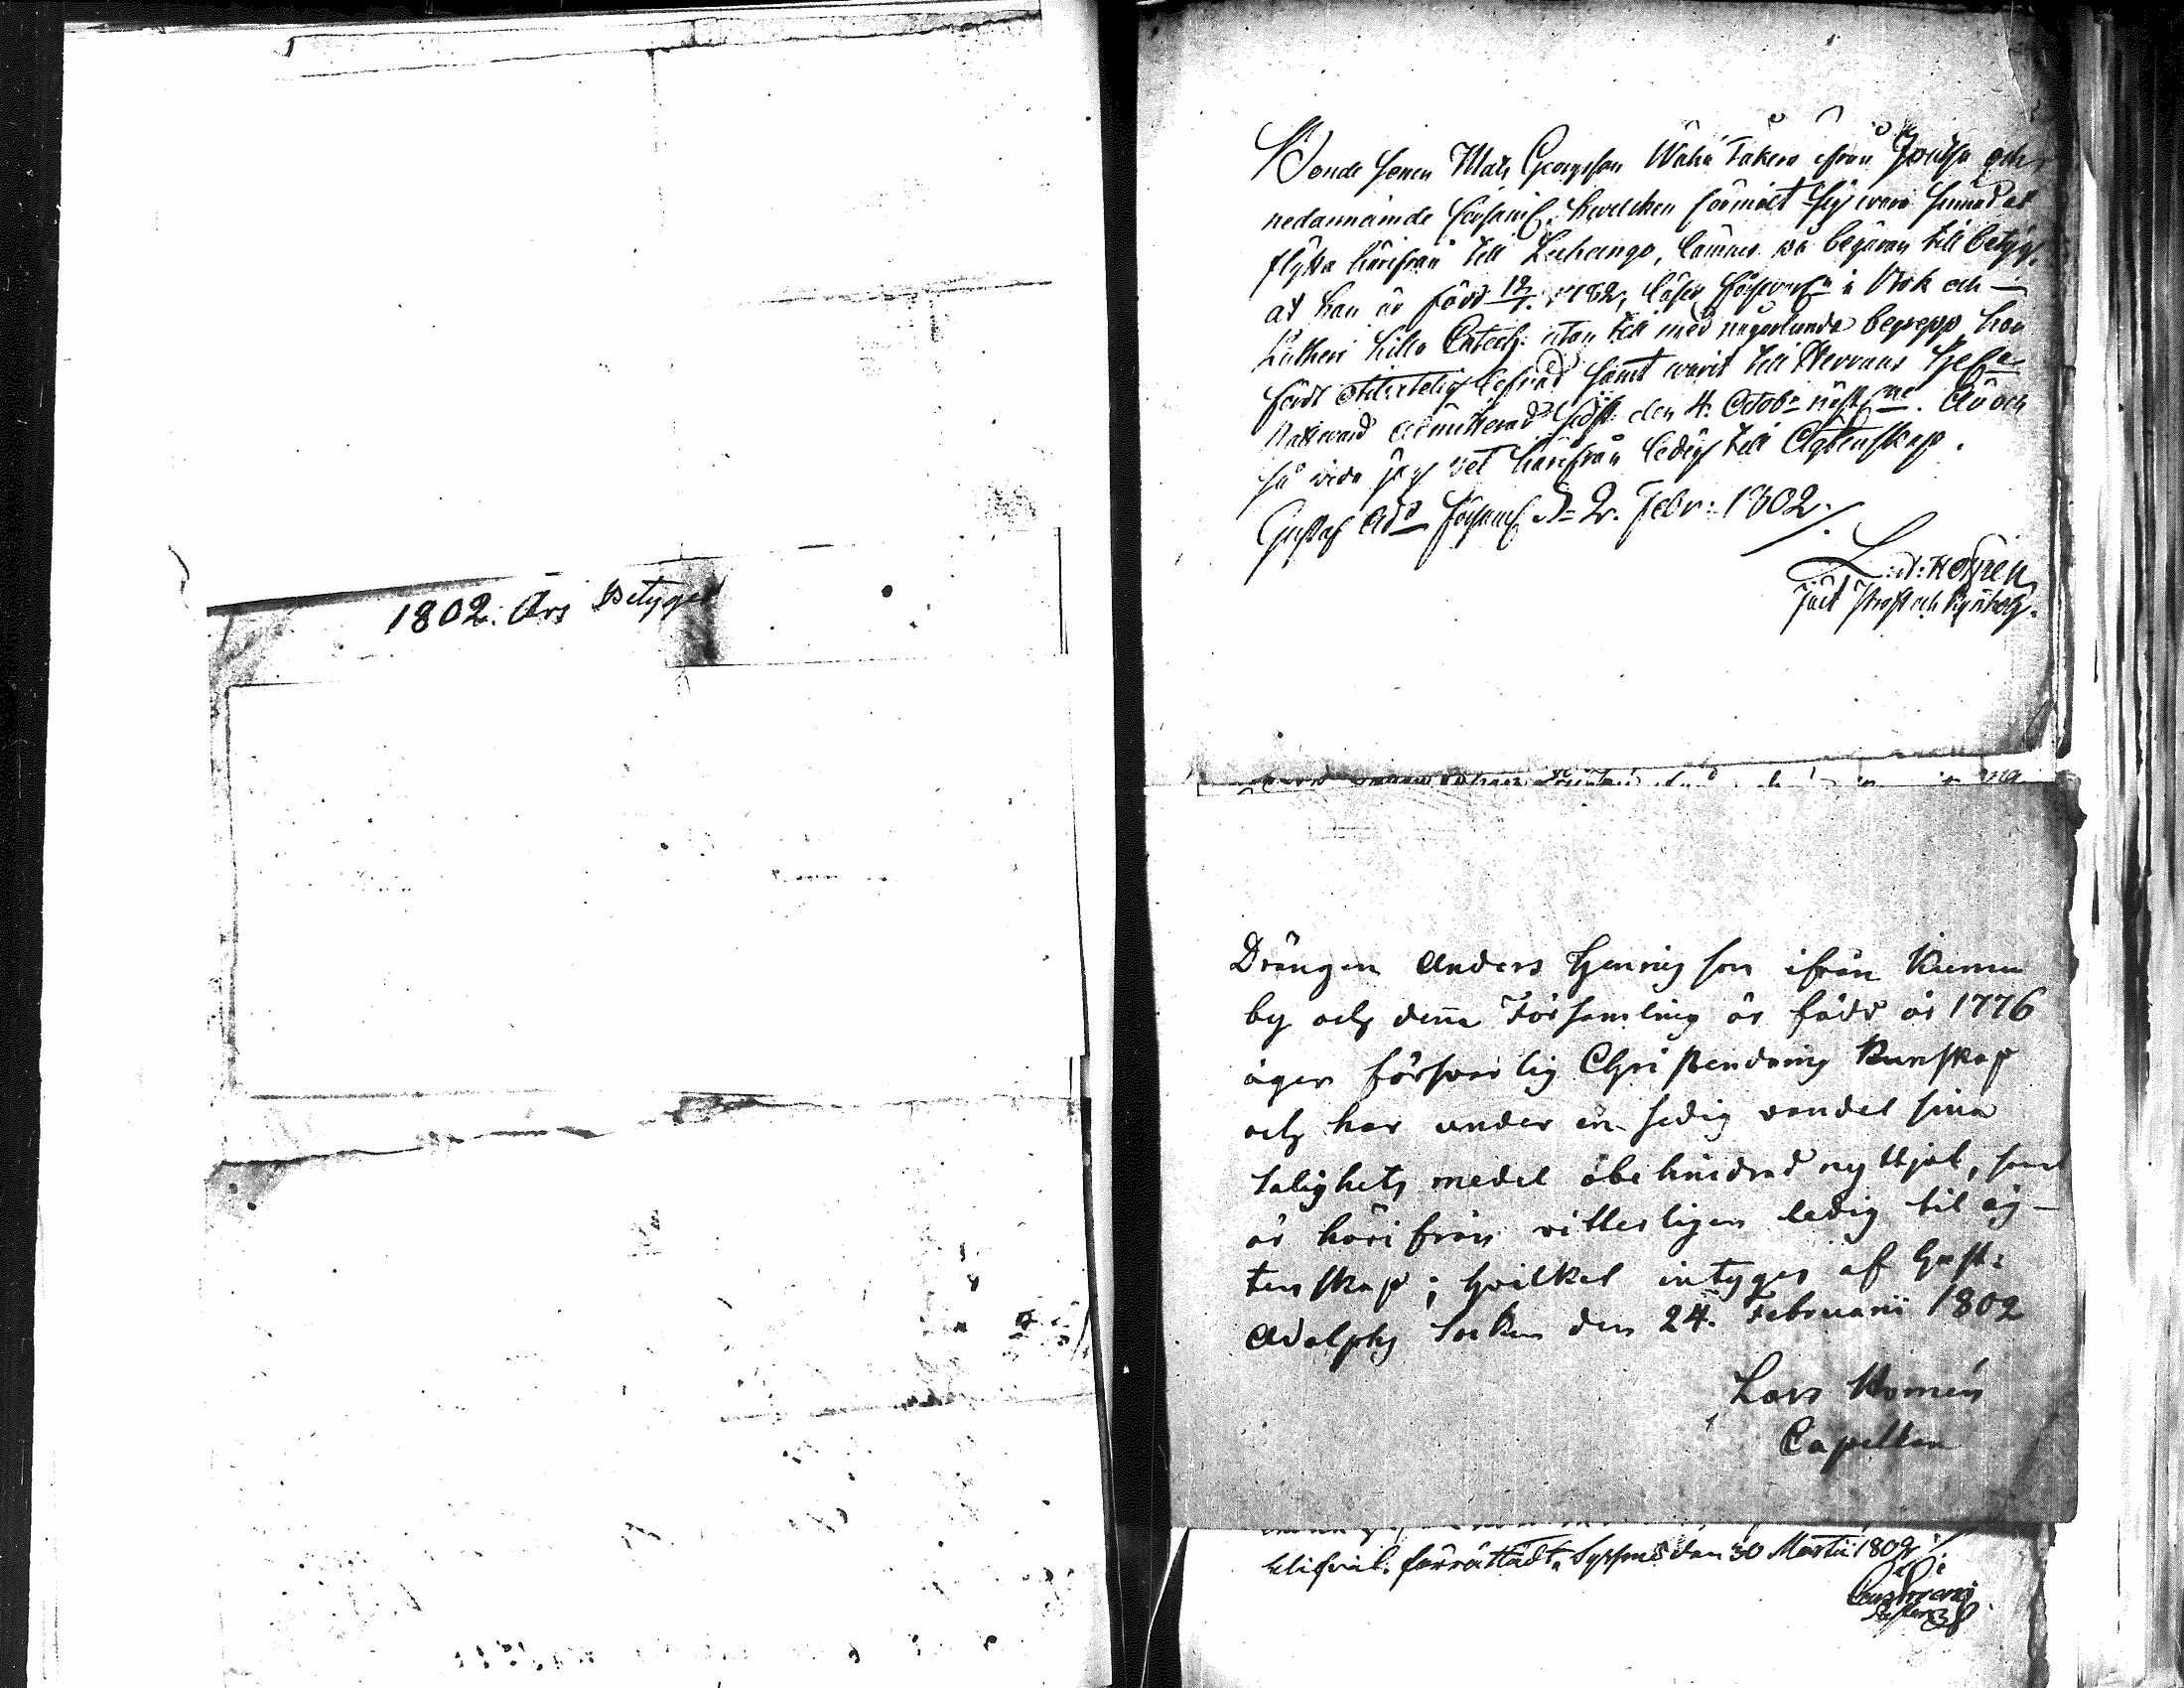 1802. Års Betyger
Bonde sonen Mats Georgsson Wähä Takera ifrån Joutsa och
nedannämde församl. hvilcken förmält sig wara sinnad at
flytta härifrån till Luhango, lämnas på begäran till betyg,
at han är född 12/7. 1782, läser försvarl:n i Bok och
Lutheri lilla Catech: utan till med någorlunda begrepp, har
fördt Christelig lefnad samt warit till Herrans Hel:a
Nattward admitterad sidst den 4. Octob:r näst:ne. Är och
så vida jag vet härifrån ledig till Ägtenskap.
Gustaf Ad:s församl. d. 2. Febr: 1802./.
Drängen Anders Henrigson ifrån Kumu
by och denna Församling är född år 1776
äger försvarlig Christendoms Kunskap
och har under en sedig vandel sina
salighets medel obehindrad nyttjat, samt
är härifrån vitterligen ledig til äg-
tenskap; hvilket intygas af Gust:
Adolphs Socken den 24. Februarii 1802
Lars Homén
Capellan
förrättadt. Syssmä den 30 Martii 1802